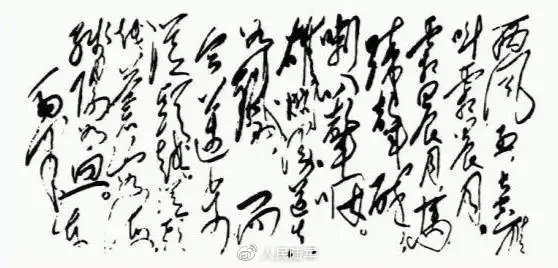 西风烈,长空雁
叫霜晨月。
霜晨月,马
蹄声碎,
喇叭声咽。
雄关漫道真
如铁,而
今迈步
从头越,从头
越,苍山如海,
残阳如血。
人民陆军